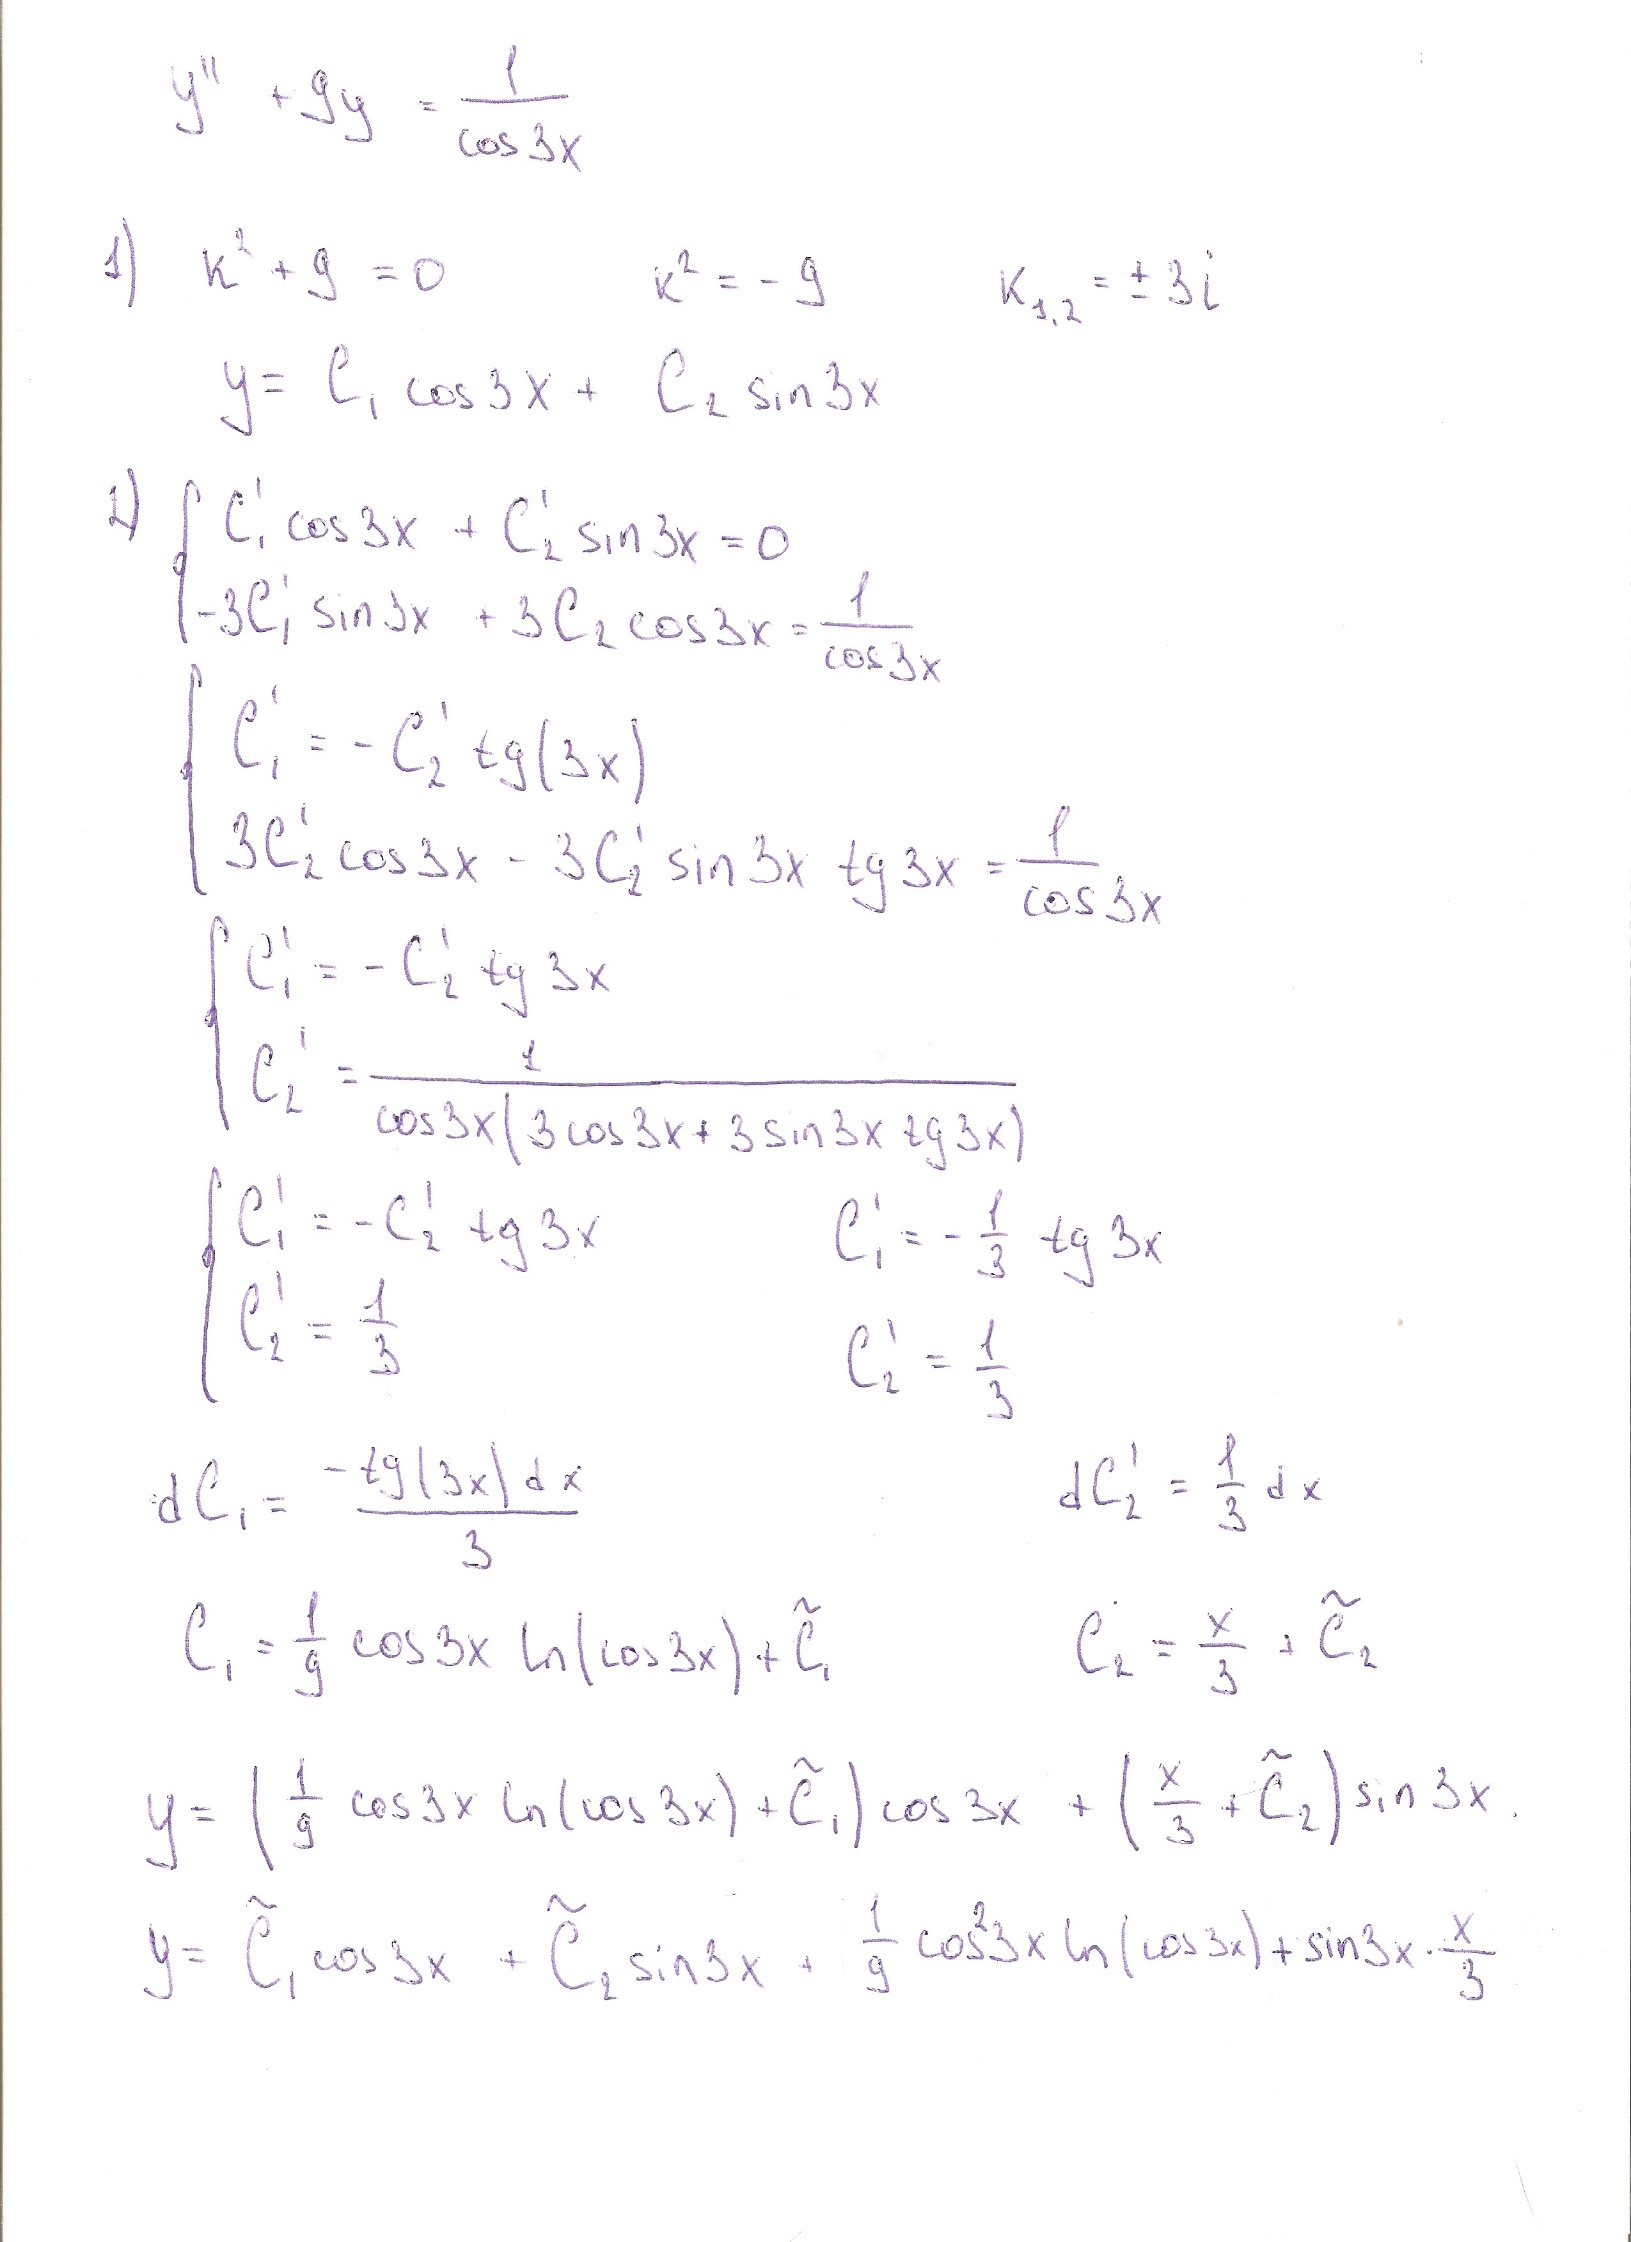 y'' + 9y = 1/cos3x
1) k² + 9 = 0 k² = -9 k₁,₂ = ±3i
y = C₁ cos3x + C₂ sin3x
2) { C₁' cos3x + C₂' sin3x = 0
-3C₁' sin3x + 3C₂ cos3x = 1/cos3x
{ C₁' = -C₂' tg(3x)
3C₂' cos3x - 3C₂' sin3x tg3x = 1/cos3x
{ C₁' = -C₂' tg3x
C₂' = 1/cos3x(3cos3x + 3sin3x tg3x)
{ C₁' = -C₂' tg3x C₁' = -1/3 tg3x
C₂' = 1/3 C₂' = 1/3
dC₁ = -tg(3x)dx/3 dC₂' = 1/3 dx
C₁ = 1/9 cos3x ln(cos3x) + C̃₁ C₂ = x/3 + C̃₂
y = (1/9 cos3x ln(cos3x) + C̃₁) cos3x + (x/3 + C̃₂) sin3x.
y = C̃₁ cos3x + C̃₂ sin3x + 1/9 cos²3x ln(cos3x) + sin3x · x/3